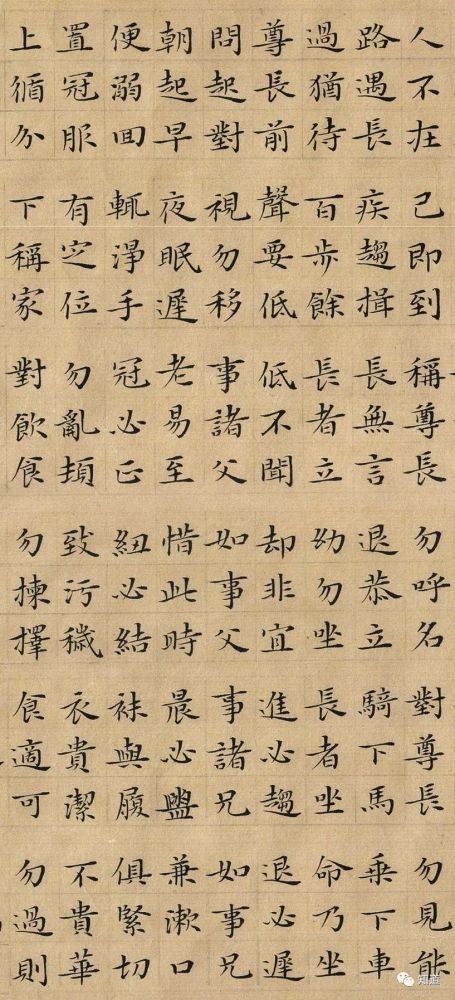 人不在己即到稱尊長勿呼名對尊長勿見能
路遇長疾趨揖長無言退恭立騎下馬乘下車
過猶待百步餘長者立幼勿坐長者坐命乃坐
尊長前聲要低低不聞却非宜進必趨退必遲
問起對視勿移事諸父如事父事諸兄如事兄
朝起早夜眠遲老易至惜此時晨必盥兼漱口
便溺回輒淨手冠必正紐必結袜與履俱緊切
置冠服有定位勿亂頓致污穢衣貴潔不貴華
上循分下稱家對飲食勿揀擇食適可勿過則